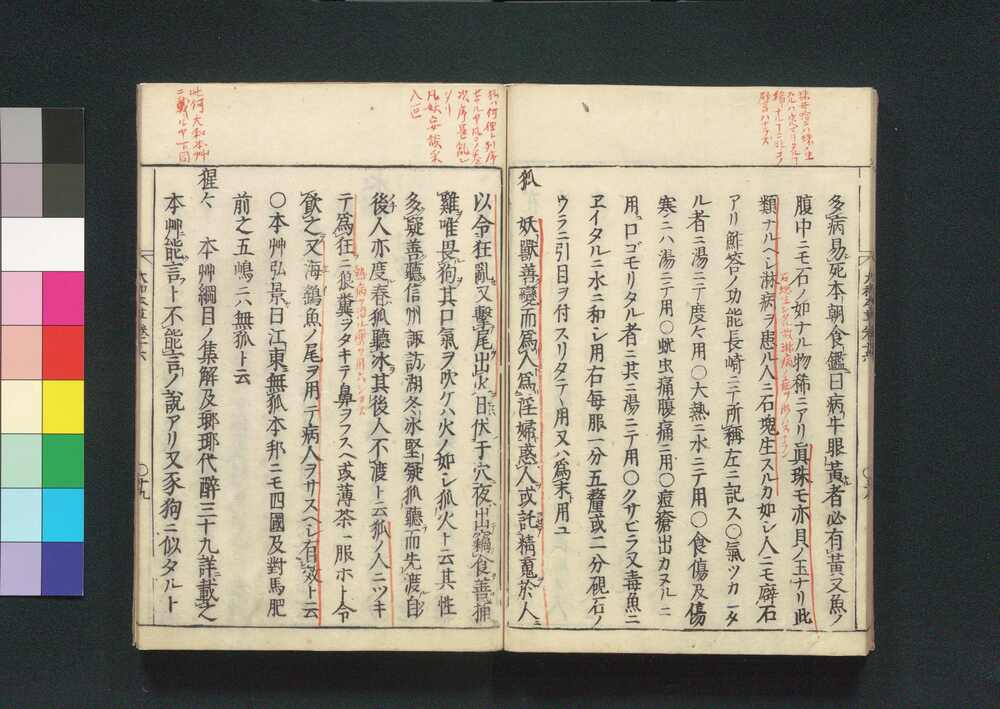 多病易死本朝食鑑曰病牛眼黃者必有黃又魚ノ
腹中ニモ石ノ如ナル物稀ニアリ眞珠モ亦貝ノ玉ナリ此
類ナルヘシ淋病ヲ患ル人ニ石塊生スルカ如シ人ニモ癖石
アリ鮓答ノ功能長崎ニテ所稱左ニ記ス〇氣ツカ一タ
ル者ニ湯ニテ度々用〇大熱ニ水ニテ用〇食傷及傷
寒ニハ湯ニテ用〇蚘虫痛腹痛ニ用〇痘瘡出カヌルニ
用ロゴモリタル者ニ其ニ湯ニテ用〇クサビラ又毒魚ニ
ヱイタルニ水ニ和シ用右每服一分五釐或二分硯石ノ
ウラニ引目ヲ付スリタテ用又ハ爲末用ユ
狐 妖獸善變而爲人爲淫婦惑人或託精䰟於人
以令狂亂又擊尾出火日伏于穴夜出竊食善捕
雞唯畏狗其口氣ヲ吹ケハ火ノ如シ狐火ト云其性
多疑善聽信州諏訪湖冬氷堅凝狐聽而先渡自
後人亦度春狐聽氷其後人不渡ト云狐ノ人ニツキ
テ爲狂ニ狼糞ヲタキテ鼻ヲフスヘ或薄茶一服ホト令
飮之又海鷂魚ノ尾ヲ用テ病人ヲサスヘシ有效ト云
〇本艸弘景曰江東無狐本邦ニモ四國及對馬肥
前之五嶋ニハ無狐ト云
猩々 本艸綱目ノ集解及瑯琊代醉三十九詳載之
本艸能言ト不能言ノ說アリ又豕狗ニ似タルト